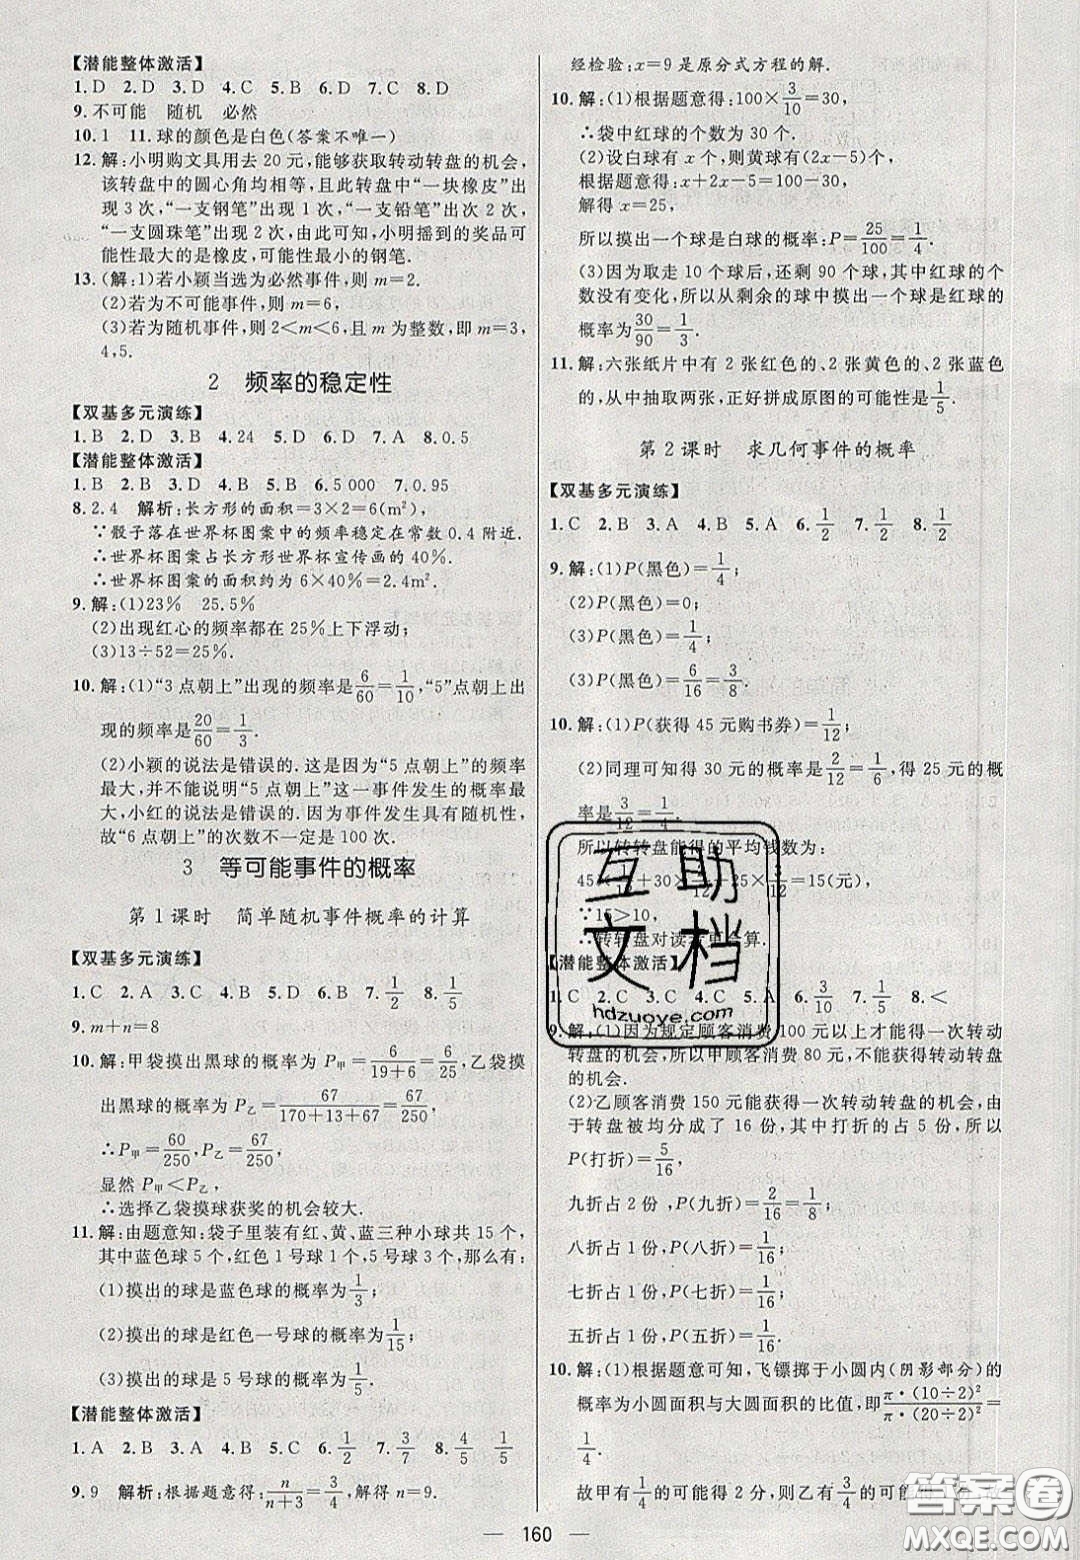 【潜能整体激活】
1.D 2.D 3.D 4.C 5.C 6.B 7.C 8.D
9.不可能 随机 必然
10.1 11.球的颜色是白色(答案不唯一)
12.解:小明购文具用去 20 元,能够获取转动转盘的机会,
该转盘中的圆心角均相等,且此转盘中“一块橡皮”出
现 3 次,“一支钢笔”出现 1 次,“一支铅笔”出现 2 次,
“一支圆珠笔”出现 2 次,由此可知,小明摇到的奖品可
能性最大的是橡皮,可能性最小的钢笔.
13.(解:1)若小颖当选为必然事件,则 m=2.
(2)若为不可能事件,则 m=6,
(3)若为随机事件,则 2<m<6,且 m 为整数,即 m=3,
4,5.
2 频率的稳定性
【双基多元演练】
1.B 2.D 3.B 4.24 5.D 6.D 7.A 8.0.5
【潜能整体激活】
1.B 2.B 3.D 4.A 5.B 6.5 000 7.0.95
8.2.4 解析:长方形的面积=3×2=6(m²),
∵骰子落在世界杯图案中的频率稳定在常数 0.4 附近.
∴世界杯图案占长方形世界杯宣传画的 40%.
∴世界杯图案的面积约为 6×40%=2.4m².
9.解:(1)23% 25.5%
(2)出现红心的频率都在 25%上下浮动;
(3)13÷52=25%.
10.解:(1)“3 点朝上”出现的频率是6/60=1/10,“5”点朝上出
现的频率是20/60=1/3.
(2)小颖的说法是错误的.这是因为“5 点朝上”的频率
最大,并不能说明“5 点朝上”这一事件发生的概率最
大,小红的说法是错误的.因为事件发生具有随机性,
故“6 点朝上”的次数不一定是 100 次.
3 等可能事件的概率
第 1 课时 简单随机事件概率的计算
【双基多元演练】
1.C 2.A 3.A 4.C 5.B 6.D 7.1/2 8.1/5
9.m+n=8
10.解:甲袋摸出黑球的概率为 P甲=6/(19+6)=6/25,乙袋摸
出黑球的概率为 P乙=67/(170+13+67)=67/250,
∴P甲=60/250,P乙=67/250.
显然 P甲<P乙,
∴选择乙袋摸球获奖的机会较大.
11.解:由题意知:袋子里装有红、黄、蓝三种小球共 15 个,
其中蓝色球 5 个,红色 1 号球 1 个,5 号球 3 个,那么有:
(1)摸出的球是蓝色球的概率为1/3;
(2)摸出的球是红色一号球的概率为1/15;
(3)摸出的球是 5 号球的概率为1/5.
【潜能整体激活】
1.A 2.B 3.A 4.B 5.C 6.1/2 7.3/7 8.4/5 1/5
9.9 解析:根据题意得:n/(n+3)=3/4,解得 n=9.
经检验:x=9 是原分式方程的解.
10.解:(1)根据题意得:100×3/10=30,
∴袋中红球的个数为 30 个.
(2)设白球有 x 个,则黄球有(2x-5)个,
根据题意得:x+2x-5=100-30,
解得 x=25,
所以摸出一个球是白球的概率:P=25/100=1/4.
(3)因为取走 10 个球后,还剩 90 个球,其中红球的个
数没有变化,所以从剩余的球中摸出一个球是红球的
概率为30/90=1/3.
11.解:六张纸片中有 2 张红色的、2 张黄色的、2 张蓝色
的,从中抽取两张,正好拼成原图的可能性是1/5.
第 2 课时 求几何事件的概率
【双基多元演练】
1.C 2.B 3.A 4.B 5.A 6.1/2 7.1/2 8.1/2
9.解:(1)P(黑色)=1/4;
(2)P(黑色)=0;
(3)P(黑色)=1/4;
(4)P(黑色)=6/16=3/8.
10.解:(1)P(获得 45 元购书券)=1/12;
(2)同理可知得 30 元的概率是2/12=1/6,得 25 元的概
率是3/12=1/4.
所以转转盘能得的平均钱数为:
=15(元),
∵15>10,
∴转转盘对读者更合算.
【潜能整体激活】
1.C 2.C 3.C 4.C 5.A 6.3/10 7.1/5 8.<
9.解:(1)因为规定顾客消费 100 元以上才能得一次转动
转盘的机会,所以甲顾客消费 80 元,不能获得转动转盘
的机会.
(2)乙顾客消费 150 元能获得一次转动转盘的机会,由
于转盘被均分成了 16 份,其中打折的占 5 份,所以
P(打折)=5/16,
九折占 2 份,P(九折)=2/16=1/8,
八折占 1 份,P(八折)=1/16,
七折占 1 份,P(七折)=1/16,
五折占 1 份,P(五折)=1/16.
10.解:(1)根据题意可知,飞镖掷于小圆内(阴影部分)的
概率为小圆面积与大圆面积的比值,即π·(10÷2)²/π·(20÷2)²=
1/4.
故甲有1/4的可能得 2 分,则乙有
160
互助
文档
hdzuoye.com
答案圈
MXQE.COM